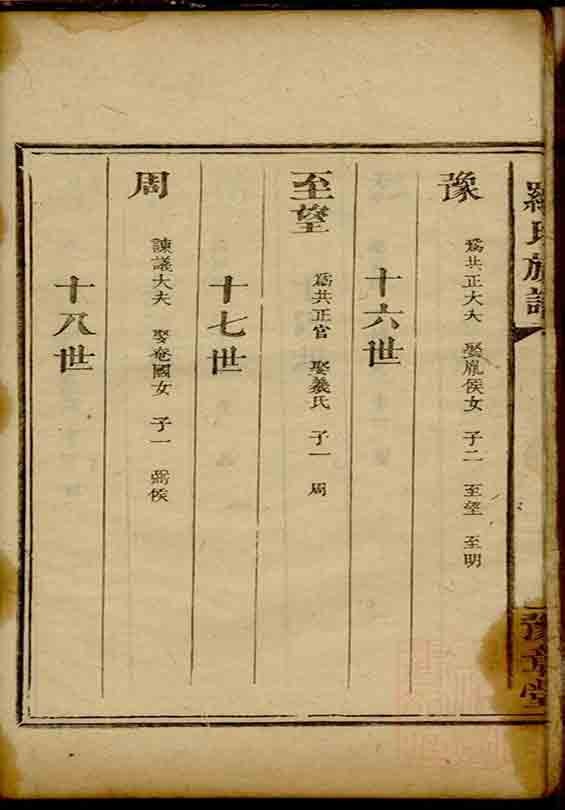 羅氏族譜
豫章堂
豫 爲共正大夫 娶胤侯女 子二 至望 至明
十六世
至望 爲共正官 娶義氏 子一 周
十七世
周 諫議大夫 娶卷國女 子一 侯
十八世